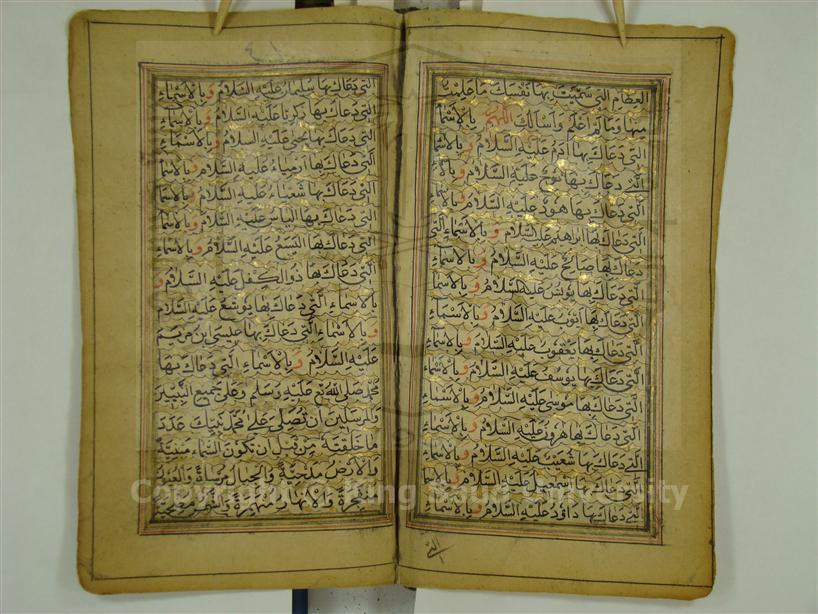 العظام التي سميت بها نفسك ما علمت
منها وما لم اعلم واسالك اللهم بالاسماء
التي دعاك بها آدم عليه السلام وبالاسماء
التي دعاك بها نوح عليه السلام وبالاسماء
التي دعاك بها هود عليه السلام وبالاسماء
التي دعاك بها ابراهيم عليه السلام وبالاسماء التي
دعاك بها صالح عليه السلام وبالاسماء
التي دعاك بها يونس عليه السلام وبالاسماء
التي دعاك بها ايوب عليه السلام وبالاسماء
التي دعاك بها يعقوب عليه السلام وبالاسماء
التي دعاك بها يوسف عليه السلام وبالاسماء
التي دعاك بها موسى عليه السلام وبالاسماء
التي دعاك بها هرون عليه السلام وبالاسماء
التي دعاك بها شعيب عليه السلام وبالاسماء
التي دعاك بها اسمعيل عليه السلام وبالاسماء
التي دعاك بها داود عليه السلام وبالاسماء
التي
التي دعاك بها سليمان عليه السلام وبالاسماء
التي دعاك بها زكريا عليه السلام وبالاسماء
التي دعاك بها يحيى عليه السلام وبالاسماء
التي دعاك بها ارمياء عليه السلام وبالاسماء
التي دعاك بها شعياء عليه السلام وبالاسماء
التي دعاك بها الياس عليه السلام وبالاسماء
التي دعاك بها اليسع عليه السلام وبالاسماء
التي دعاك بها ذوالكفل عليه السلام و
بالاسماء التي دعاك بها يوشع عليه السلام
وبالاسماء التي دعاك بها عيسى بن مريم
عليه السلام وبالاسماء التي دعاك بها
محمد صلى الله عليه وسلم وعلى جميع النبيين
والمرسلين ان تصلي على محمد نبيك عدد
ما خلقته من قبل ان تكون السماء مبنية
والارض مدحية والجبال مرساة والعيون
منفجرة والانهار منهمرة والشمس
Copyright © King Saud University